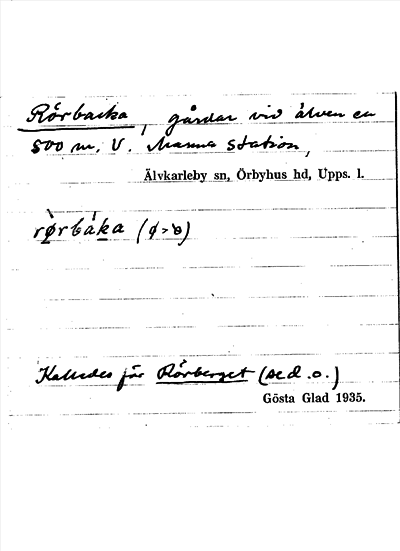 Rörbacka, gårdar vid älven en
500 m. V. Marma station,
Älvkarleby sn, Örbyhus hd, Upps. l.
rø̀rbáka (ø>ɵ)
Kallades för Rörberget (se d. o.)
Gösta Glad 1935.